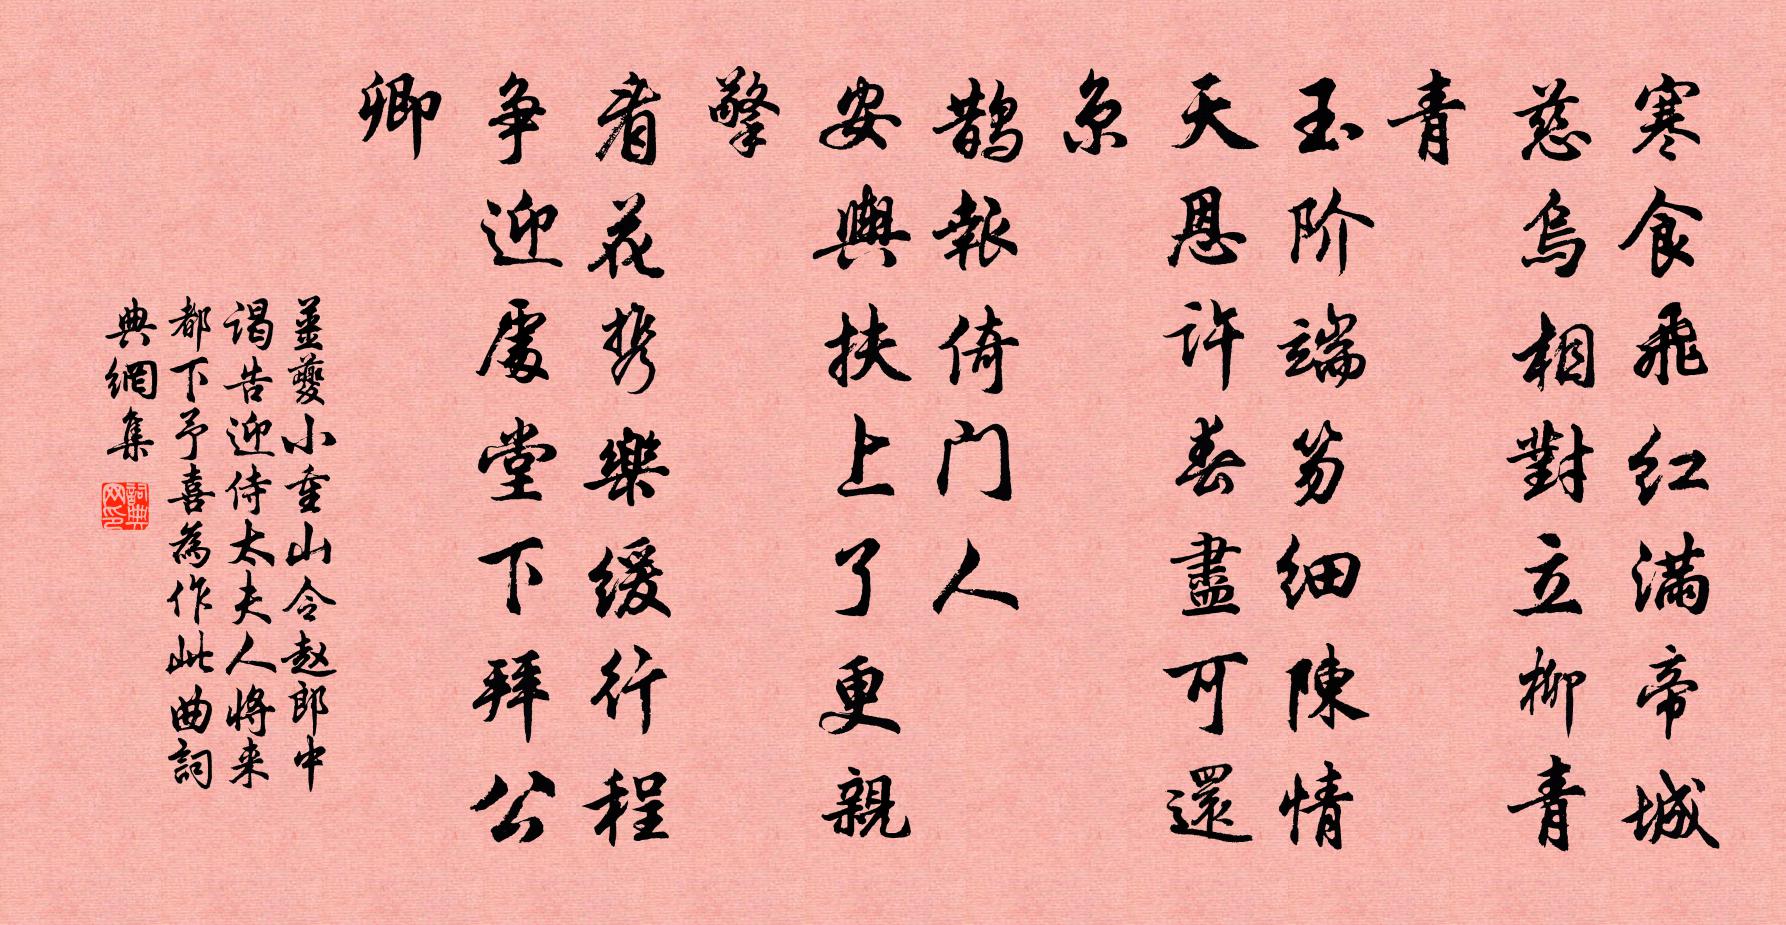 寒食飛红满帝城
慈烏相對立柳青
青
玉阶端笏细陳情
天恩許春盡可還
京
鵲報倚门人
安輿扶上了更親
擎
看花携樂缓行程
争迎處堂下拜公
卿
姜夔小重山令赵郎中
谒告迎侍太夫人将来
都下予喜為作此曲詞
典網集
詞典网印